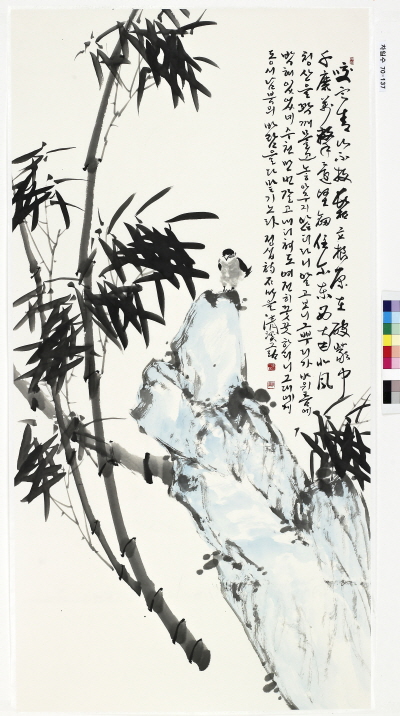 咬定青山不放鬆立根原在破巖中
千磨萬擊還堅勁任尓東西南北風
청산을 꽉 깨물고 놓아주지 않더니 알고보니 그 뿌리가 바위틈에
박혀 있었네 수천만번 갈고 내리쳐도 여전히 꿋꿋하려니 그대에게
동서남북의 바람을 다 맡기노라
70-137